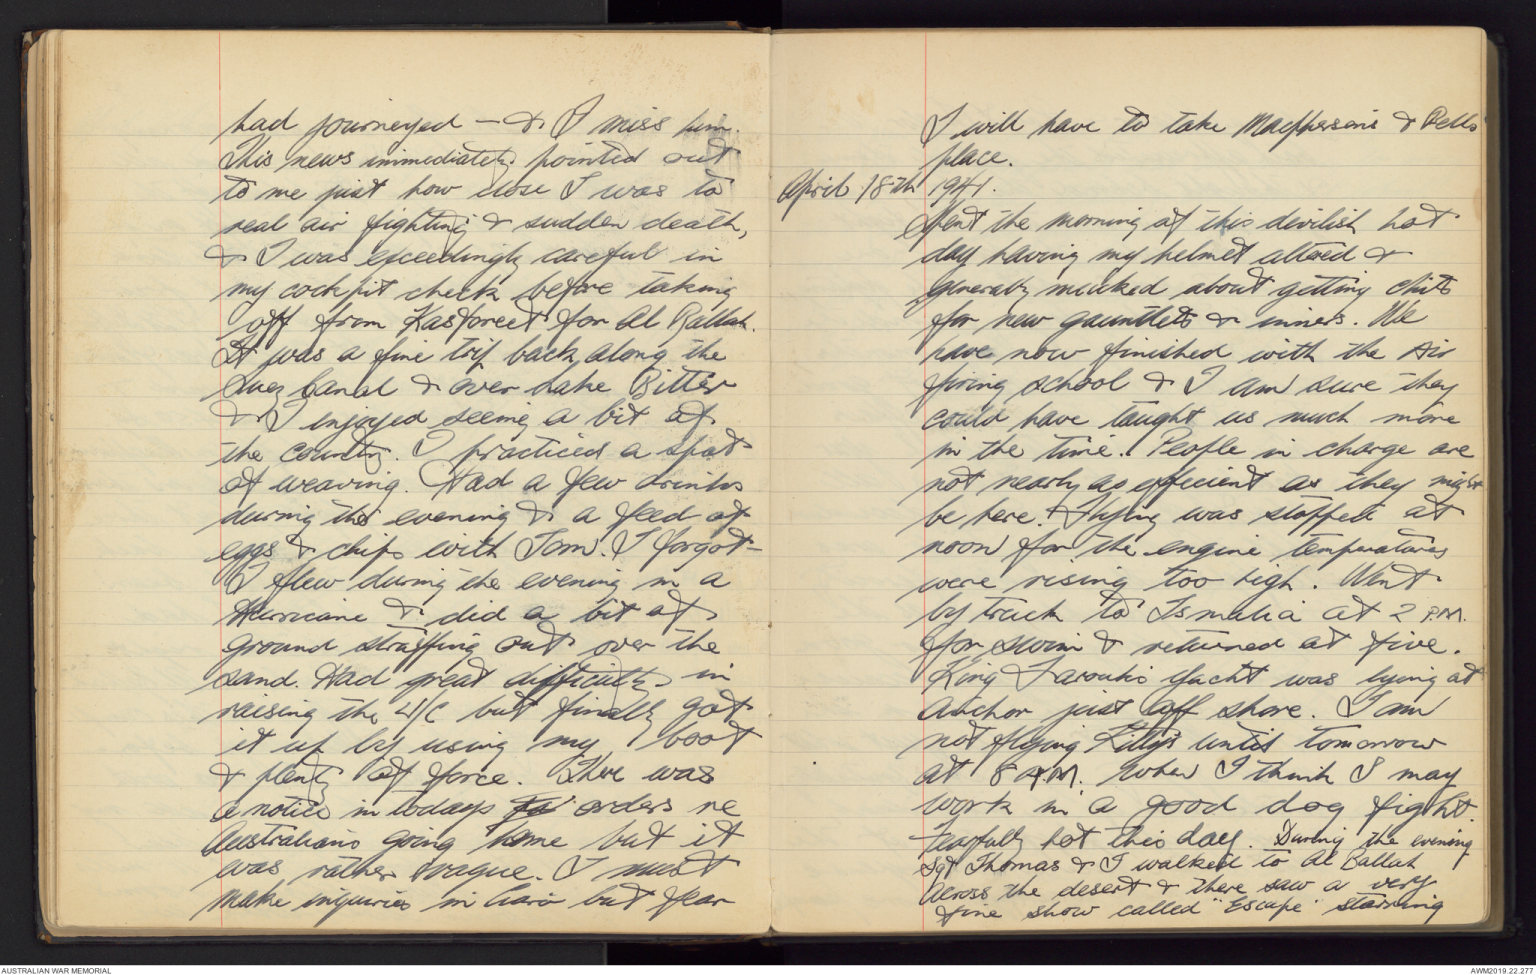 had journeyed — & I miss him.
This news immediately pointed out
to me just how close I was to
real air fighting & sudden death,
& I was exceedingly careful in
my cockpit check before taking
off from Kasfereet for Al Ballah.
It was a fine trip back along the
Suez Canal & over Lake Bitter
& I enjoyed seeing a bit of
the country. I practiced a spot
of weaving. Had a few drinks
during the evening & a feed of
eggs & chips with Tom. I forgot —
I flew during the evening in a
Hurricane & did a bit of
ground straffing out over the
sand. Had great difficulty in
raising the U/C but finally got
it up by using my boot
& plenty of force. There was
a notice in todays orders re
Australians going home but it
was rather vague. I must
make inquiries in Cairo but fear
I will have to take Macphersons & Pells
place.
April 18th 1941.
Spent the morning of this devilish hot
day having my helmet altered &
generally mucked about getting chits
for new gauntlets & inners. We
have now finished with the Air
firing school & I am sure they
could have taught us much more
in the time. People in charge are
not nearly as efficient as they might
be here. Flying was stopped at
noon for the engine temperatures
were rising too high. Went
by truck to Ismalia at 2 P.M.
for swim & returned at five.
King Farouks yacht was lying at
anchor just off shore. I am
not flying Kitty's until tomorrow
at 8 A.M. when I think I may
work in a good dog fight.
Fearfully hot this day. During the evening
Sgt Thomas & I walked to Al Ballah
across the desert & there saw a very
fine show called "Escape" starring
AUSTRALIAN WAR MEMORIAL
AWM2019.22.277